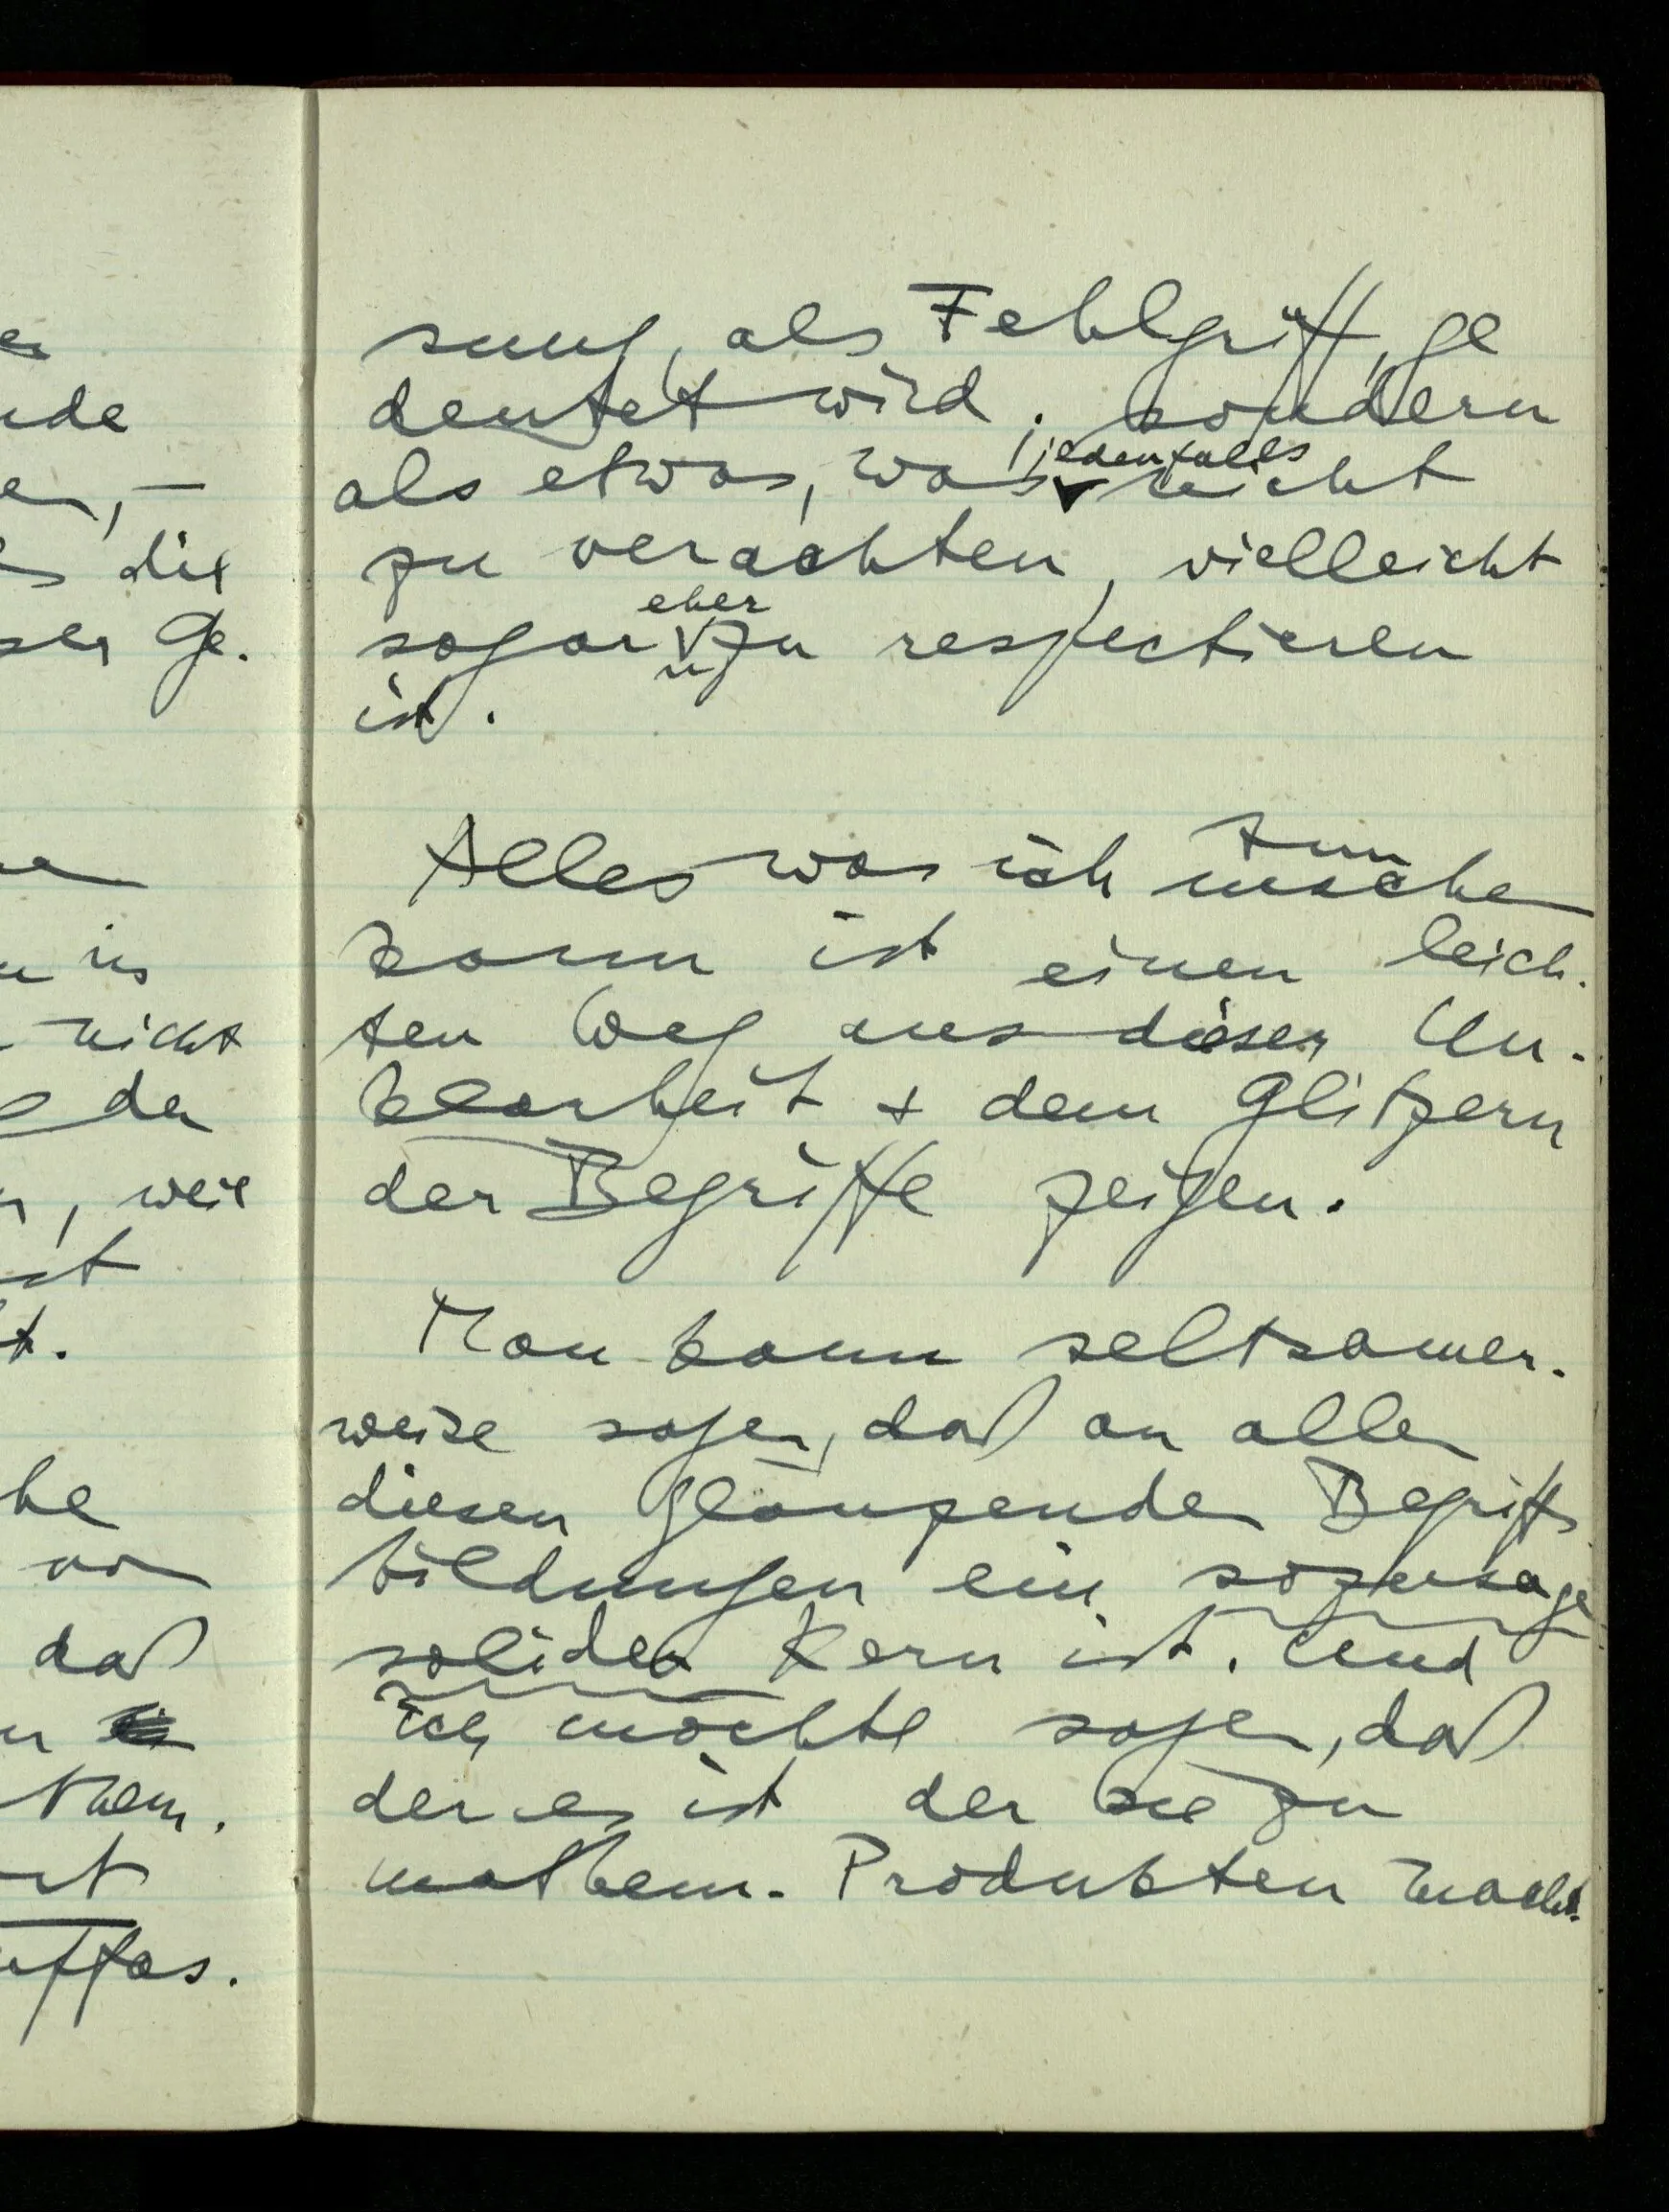 er
nde
en, —
s die
ser Ge-
ne
n ins
nicht
der
n, weil
ist
t.
he
von
daß
n
them.
rt
uffas-
sung, als Fehlgriff, ge
deutet wird. sondern
jedenfalls
als etwas, was nicht
zu verachten, vielleicht
eher
sogar zu respectieren
ist.
tun
Alles was ich mache
kann ist einen leich-
ten Weg aus dieser Un-
klarheit + dem Glitzern
der Begriffe zeigen.
Man kann seltsamer-
weise sagen, daß an allen
diesen glänzenden Begriffs
bildungen ein sozusage
solider Kern ist. Und
ich möchte sagen, daß
der es ist der sie zu
mathem. Produkten macht.